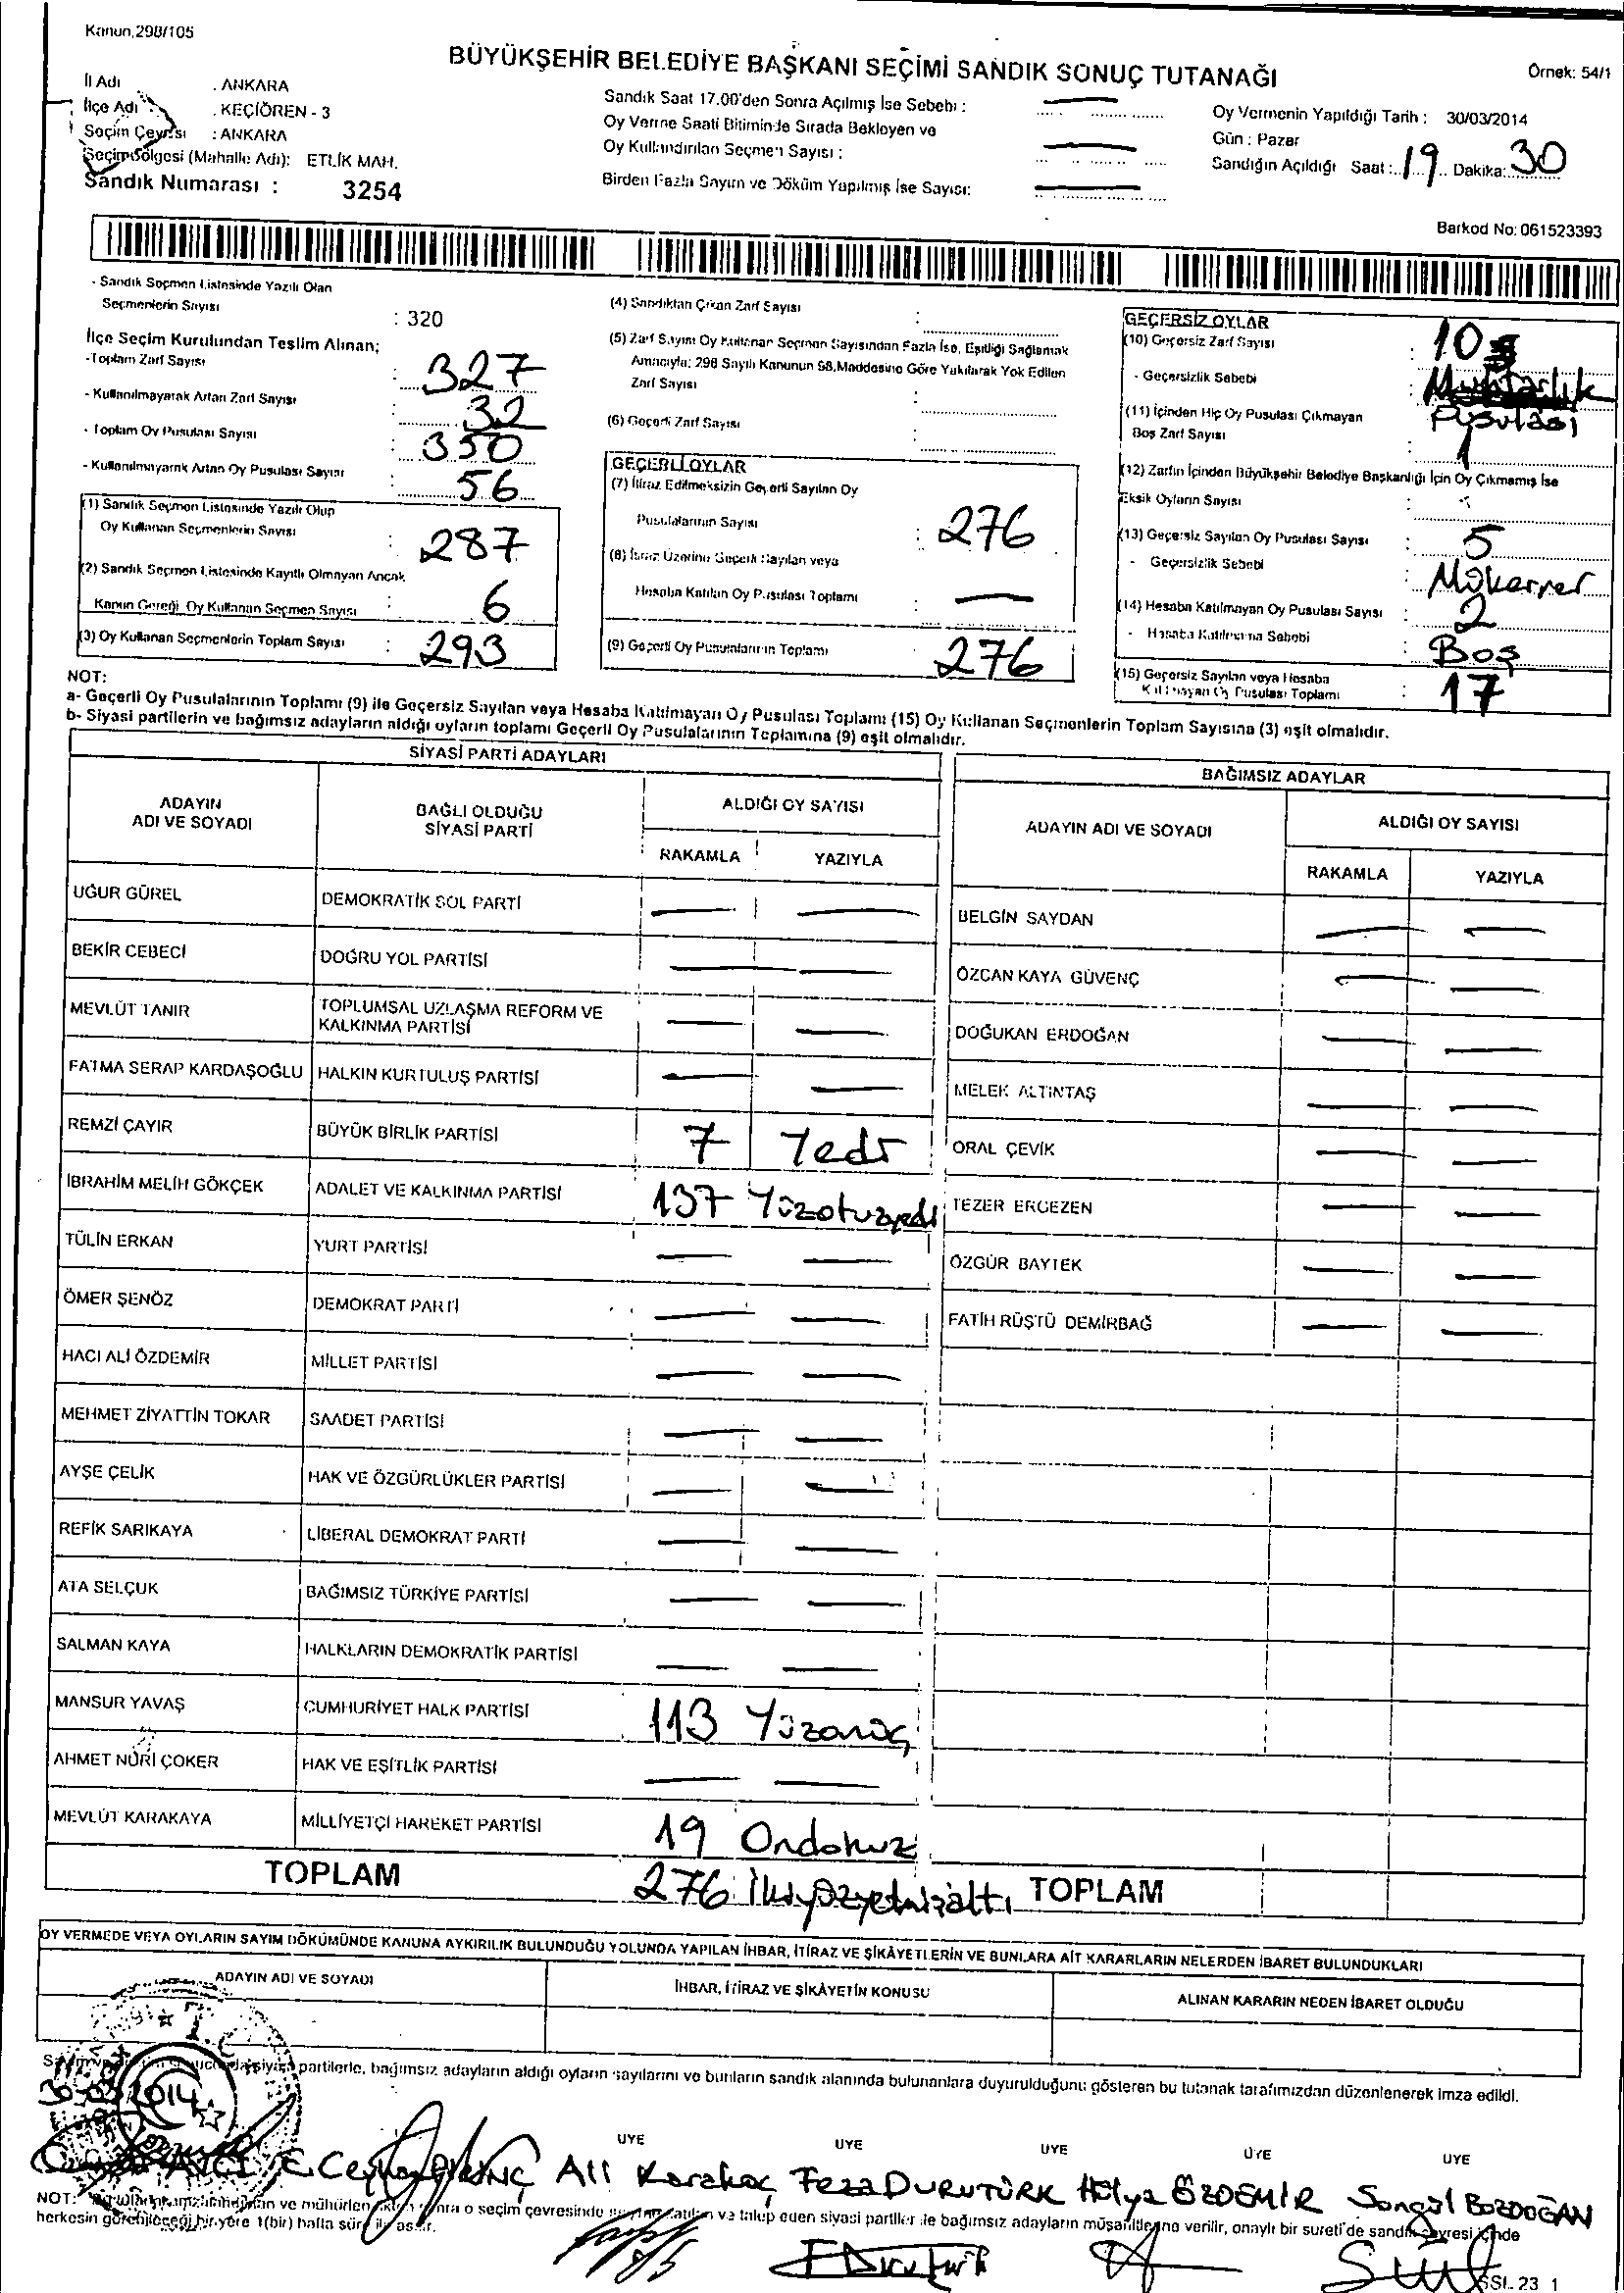 Kanun,298/105
BÜYÜKŞEHİR BELEDİYE BAŞKANI SEÇİMİ SANDIK SONUÇ TUTANAĞI
Örnek: 54/1
İl Adı : ANKARA
İlçe Adı : KEÇİÖREN - 3
Seçim Çevresi : ANKARA
Seçim Bölgesi (Mahalle Adı): ETLİK MAH.
Sandık Numarası : 3254
Sandık Saat 17.00'den Sonra Açılmış İse Sebebi :
Oy Verme Saati Bitiminde Sırada Bekleyen ve
Oy Kullandırılan Seçmen Sayısı :
Birden Fazla Sayım ve Döküm Yapılmış İse Sayısı:
Oy Vermenin Yapıldığı Tarih : 30/03/2014
Gün : Pazar
Sandığın Açıldığı Saat : 19 Dakika: 30
Barkod No: 061523393
- Sandık Seçmen Listesinde Yazılı Olan
Seçmenlerin Sayısı : 320
İlçe Seçim Kurulundan Teslim Alınan;
-Toplam Zarf Sayısı : 327
- Kullanılmayarak Artan Zarf Sayısı : 32
- Toplam Oy Pusulası Sayısı : 350
- Kullanılmayarak Artan Oy Pusulası Sayısı : 56
(1) Sandık Seçmen Listesinde Yazılı Olup
Oy Kullanan Seçmenlerin Sayısı : 287
(2) Sandık Seçmen Listesinde Kayıtlı Olmayan Ancak
Kanun Gereği Oy Kullanan Seçmen Sayısı : 6
(3) Oy Kullanan Seçmenlerin Toplam Sayısı : 293
(4) Sandıktan Çıkan Zarf Sayısı :
(5) Zarf Sayını Oy Kullanan Seçmen Sayısından Fazla İse, Eşitliği Sağlamak
Amacıyla; 298 Sayılı Kanunun 98.Maddesine Göre Yakılarak Yok Edilen
Zarf Sayısı :
(6) Geçerli Zarf Sayısı :
GEÇERLİ OYLAR
(7) İtiraz Edilmeksizin Geçerli Sayılan Oy
Pusulalarının Sayısı : 276
(8) İtiraz Üzerine Geçerli Sayılan veya
Hesaba Katılan Oy Pusulası Toplamı :
(9) Geçerli Oy Pusulalarının Toplamı : 276
GEÇERSİZ OYLAR
(10) Geçersiz Zarf Sayısı : 10
- Geçersizlik Sebebi : Muhtarlık
Pusulası
(11) İçinden Hiç Oy Pusulası Çıkmayan
Boş Zarf Sayısı :
(12) Zarfın İçinden Büyükşehir Belediye Başkanlığı İçin Oy Çıkmamış İse
Eksik Oyların Sayısı :
(13) Geçersiz Sayılan Oy Pusulası Sayısı : 5
- Geçersizlik Sebebi : Mükerrer
(14) Hesaba Katılmayan Oy Pusulası Sayısı : 2
- Hesaba Katılmama Sebebi : Boş
(15) Geçersiz Sayılan veya Hesaba
Katılmayan Oy Pusulası Toplamı : 17
NOT:
a- Geçerli Oy Pusulalarının Toplamı (9) ile Geçersiz Sayılan veya Hesaba Katılmayan Oy Pusulası Toplamı (15) Oy Kullanan Seçmenlerin Toplam Sayısına (3) eşit olmalıdır.
b- Siyasi partilerin ve bağımsız adayların aldığı oyların toplamı Geçerli Oy Pusulalarının Toplamına (9) eşit olmalıdır.
SİYASİ PARTİ ADAYLARI
ADAYIN ADI VE SOYADI
BAĞLI OLDUĞU SİYASİ PARTİ
ALDIĞI OY SAYISI
RAKAMLA YAZIYLA
UĞUR GÜREL DEMOKRATİK SOL PARTİ
BEKİR CEBECİ DOĞRU YOL PARTİSİ
MEVLÜT TANIR TOPLUMSAL UZLAŞMA REFORM VE
KALKINMA PARTİSİ
FATMA SERAP KARDAŞOĞLU HALKIN KURTULUŞ PARTİSİ
REMZİ ÇAYIR BÜYÜK BİRLİK PARTİSİ 7 Yedi
İBRAHİM MELİH GÖKÇEK ADALET VE KALKINMA PARTİSİ 137 Yüzotuzyedi
TÜLİN ERKAN YURT PARTİSİ
ÖMER ŞENÖZ DEMOKRAT PARTİ
HACI ALİ ÖZDEMİR MİLLET PARTİSİ
MEHMET ZİYATTİN TOKAR SAADET PARTİSİ
AYŞE ÇELİK HAK VE ÖZGÜRLÜKLER PARTİSİ
REFİK SARIKAYA LİBERAL DEMOKRAT PARTİ
ATA SELÇUK BAĞIMSIZ TÜRKİYE PARTİSİ
SALMAN KAYA HALKLARIN DEMOKRATİK PARTİSİ
MANSUR YAVAŞ CUMHURİYET HALK PARTİSİ 113 Yüzonüç
AHMET NURİ ÇOKER HAK VE EŞİTLİK PARTİSİ
MEVLÜT KARAKAYA MİLLİYETÇİ HAREKET PARTİSİ 19 Ondokuz
TOPLAM 276 İkiyüzyetmişaltı
BAĞIMSIZ ADAYLAR
ADAYIN ADI VE SOYADI
ALDIĞI OY SAYISI
RAKAMLA YAZIYLA
BELGİN SAYDAN
ÖZCAN KAYA GÜVENÇ
DOĞUKAN ERDOĞAN
MELEK ALTINTAŞ
ORAL ÇEVİK
TEZER ERGEZEN
ÖZGÜR BAYTEK
FATİH RÜŞTÜ DEMİRBAĞ
TOPLAM
OY VERMEDE VEYA OYLARIN SAYIM DÖKÜMÜNDE KANUNA AYKIRILIK BULUNDUĞU YOLUNDA YAPILAN İHBAR, İTİRAZ VE ŞİKÂYETLERİN VE BUNLARA AİT KARARLARIN NELERDEN İBARET BULUNDUKLARI
ADAYIN ADI VE SOYADI
İHBAR, İTİRAZ VE ŞİKÂYETİN KONUSU
ALINAN KARARIN NEDEN İBARET OLDUĞU
siyasi partilerle, bağımsız adayların aldığı oyların sayılarını ve bunların sandık alanında bulunanlara duyurulduğunu gösteren bu tutanak tarafımızdan düzenlenerek imza edildi.
30.03.2014
ÜYE ÜYE ÜYE ÜYE ÜYE
Ali Karakoç Feza DURUTÜRK Hülya ÖZDEMİR Songül BOZDOĞAN
NOT: ve mühürlendikten sonra o seçim çevresinde seçime katılan ve talep eden siyasi partiler ile bağımsız adayların müşahitlerine verilir, onaylı bir sureti de sandık çevresi içinde
herkesin görebileceği bir yere 1(bir) hafta süre ile asılır.
SSL 23 1